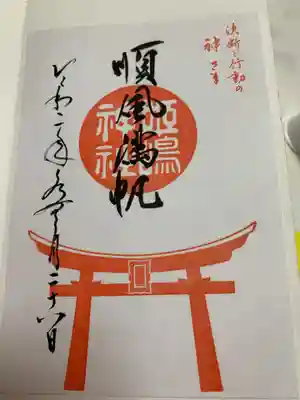 決断と行動の
神さま
順風満帆
姫嶋
神社
令和二年 月二十八日